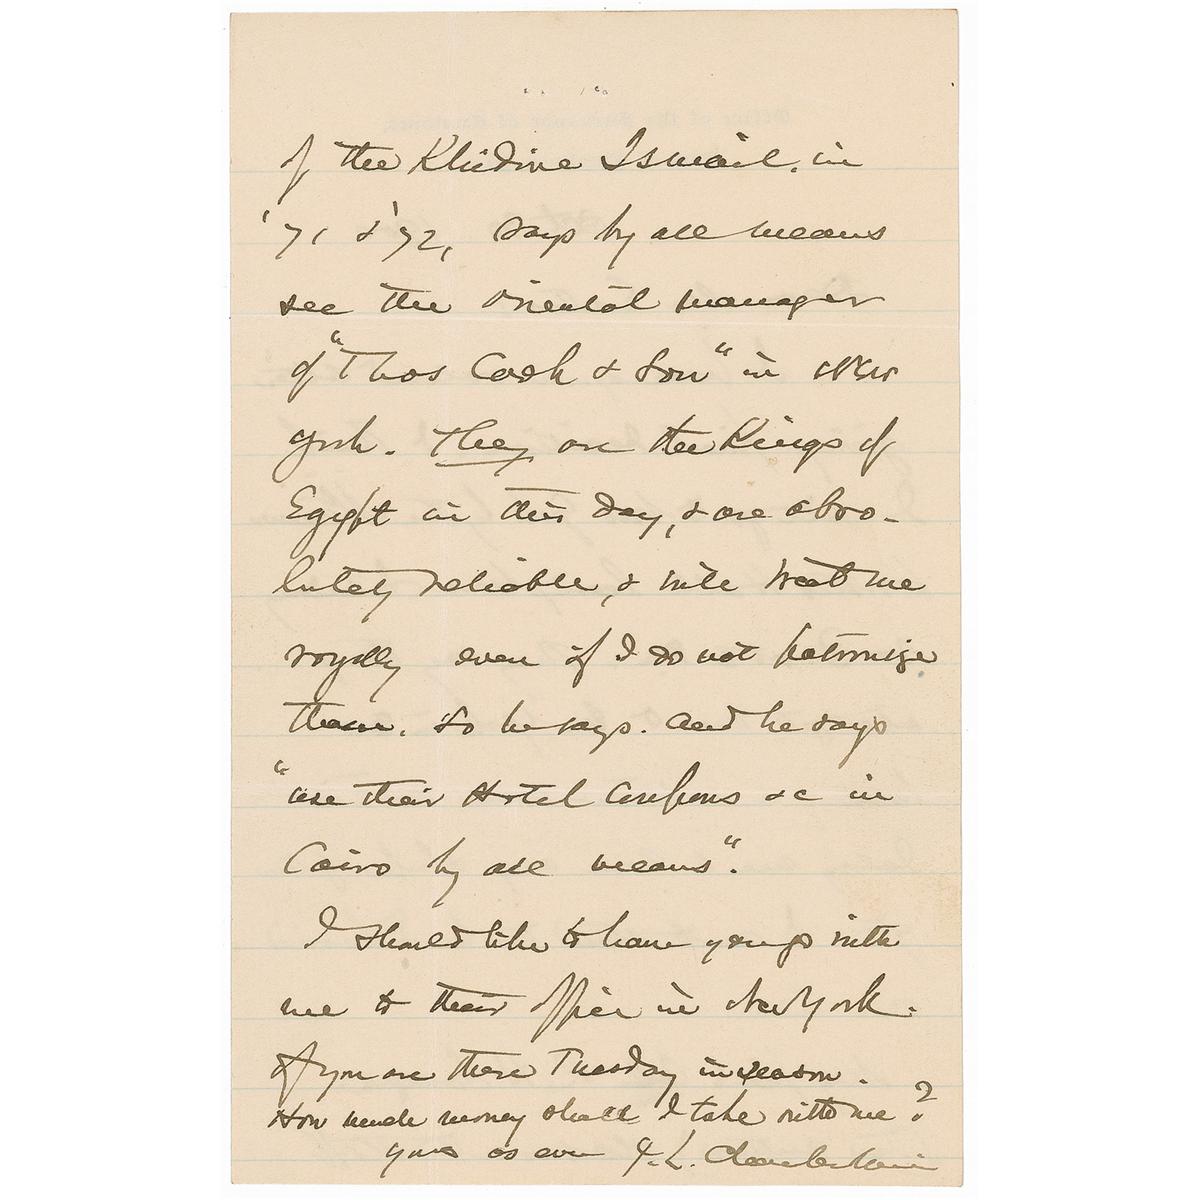 of the Khedive Ismail, in
'71 & '72, says by all means
see the Oriental manager
of "Thos Cook & Son" in New
York. They are the Kings of
Egypt in this day, & are abso-
lutely reliable, & will treat me
royally even if I do not patronize
them. So he says. And he says
"use their Hotel Coupons &c in
Cairo by all means".
I should like to have you go with
me to their office in New York.
If you are there Tuesday in season.
How much money shall I take with me?
yours as ever J. L. Chamberlain